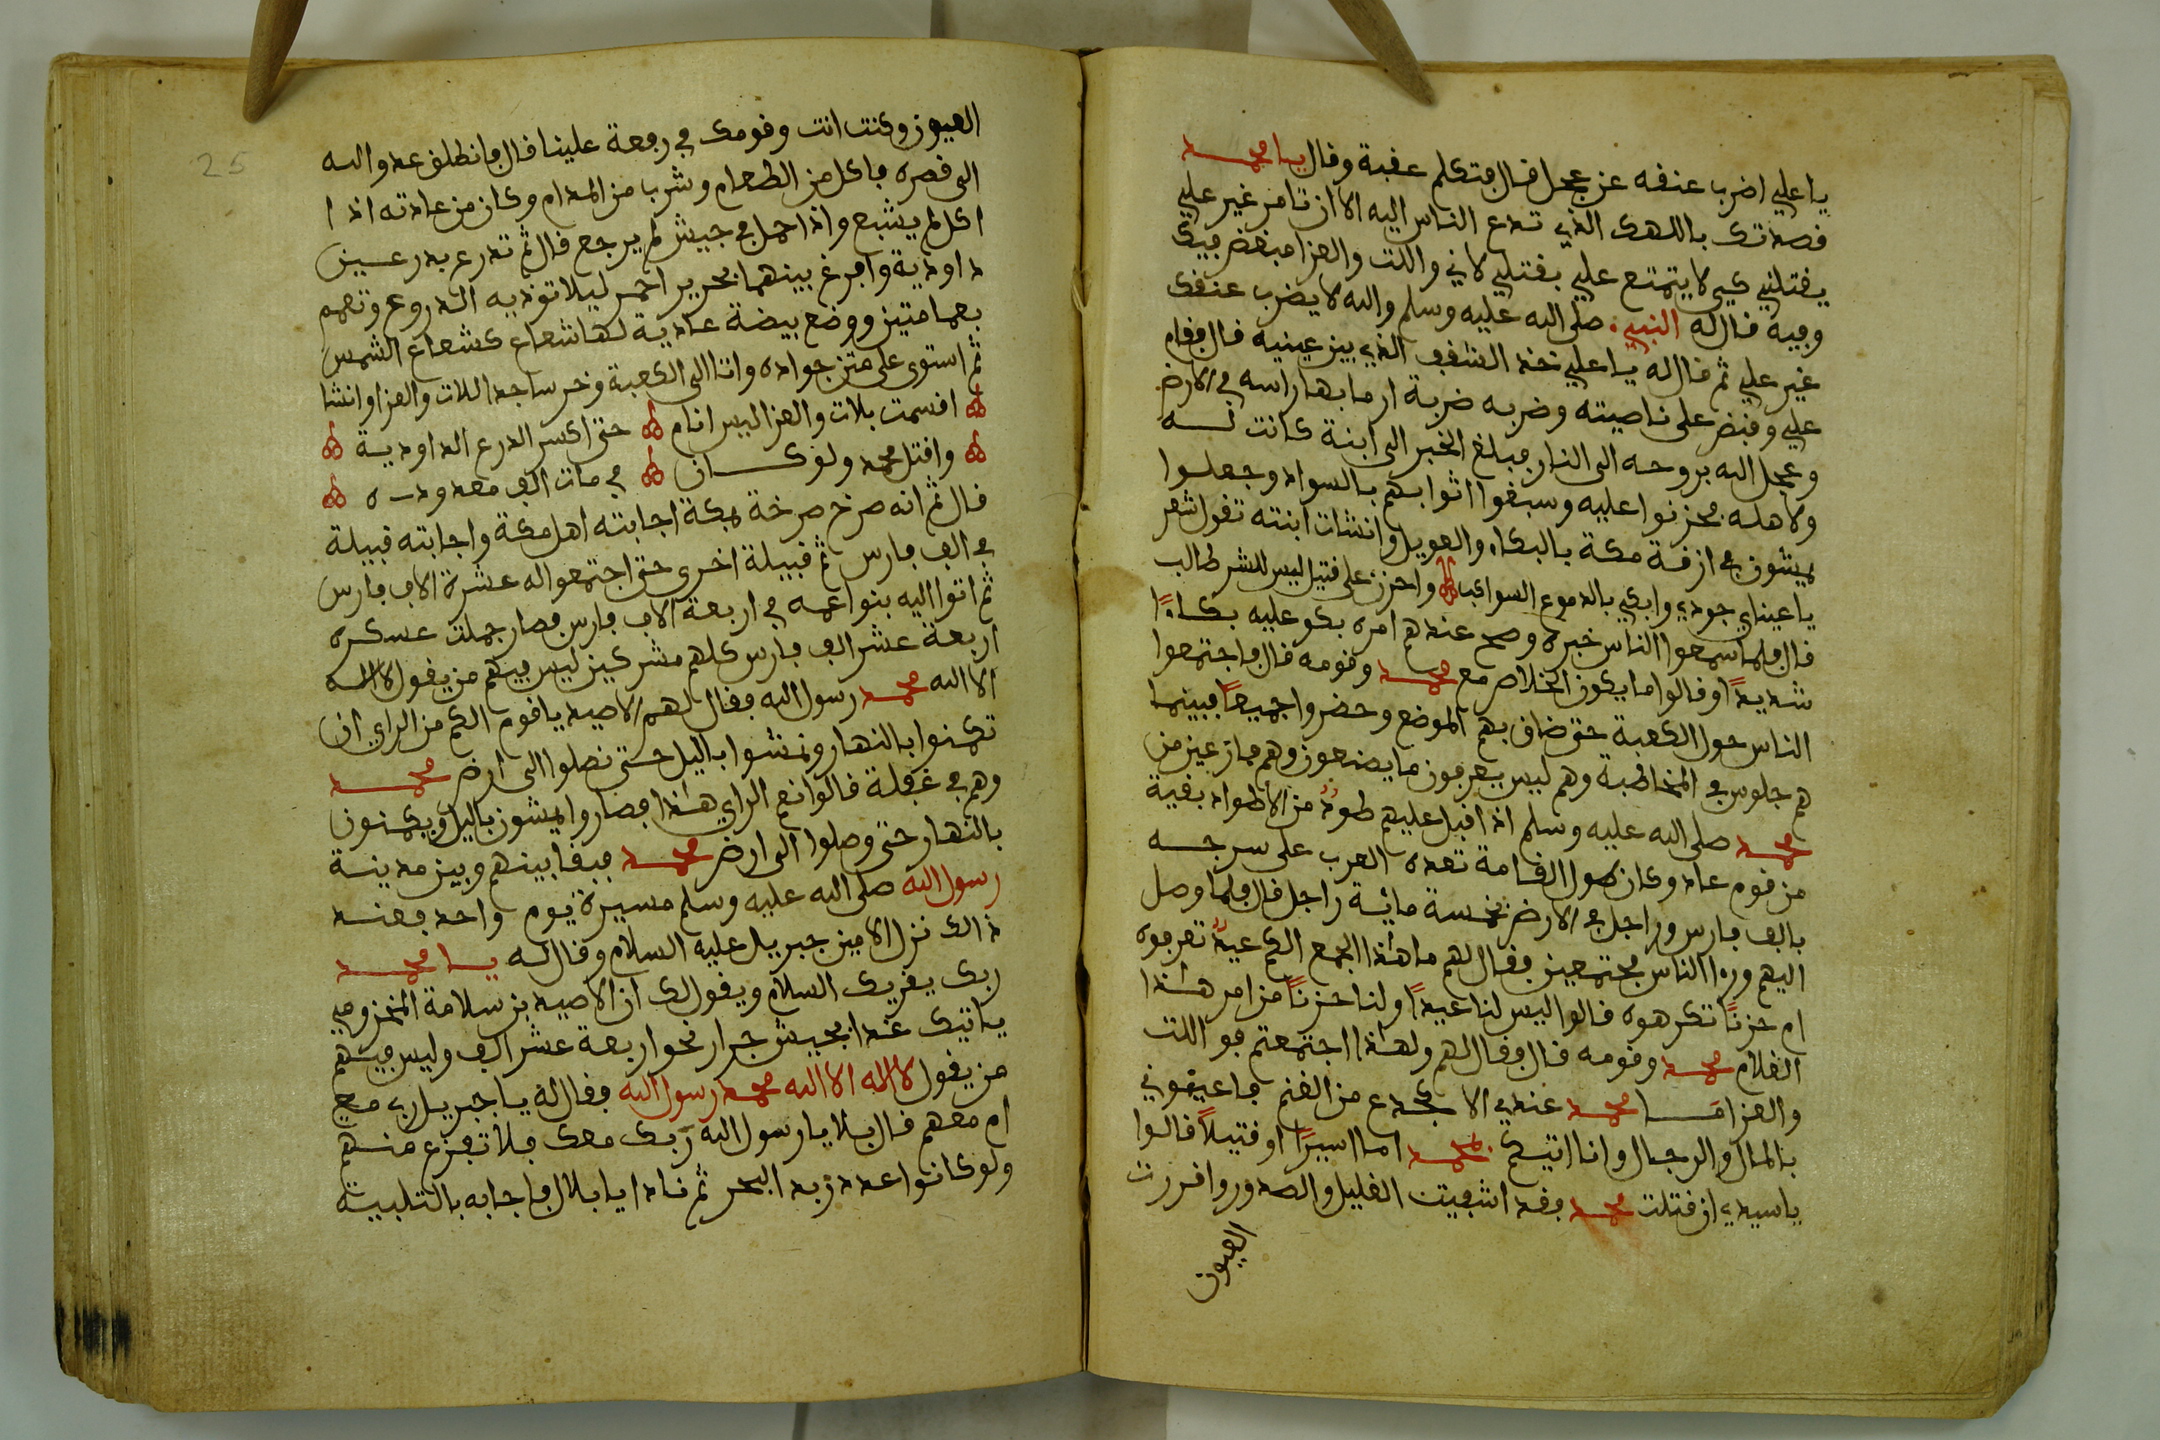 يا علي اضرب عنقه عن عجل قال فتكلم عقبة وقال يا محمد
قصدتك باللهك الذي تدع الناس اليه الا ان تامر غير علي
يقتلني كي لا يتمتع علي بقتلي لاني واللت والعزا مبغض فيك
وفيه قال له النبي صلى الله عليه وسلم والله لا يضرب عنقك
غير علي ثم قال له يا علي خذ الشقف الذي بين عينيه قال فقام
علي وقبض على ناصيته وضربه ضربة ارما بها راسه في الارض
وعجل الله بروحه الى النار فبلغ الخبر الى ابنة كانت له
ولاهله فحزنوا عليه وسبغوا اثوابهم بالسواد وجعلوا
يمشون في ازقة مكة بالبكاء والعويل وانشات ابنته تقول شعر
يا عيناي جودي وابكي بالدموع السواكبا واحزن على قتيل ليس للشر طالب
قال فلما سمعوا الناس خبره وصح عندهم امره بكو عليه بكاءً
شديدًا وقالوا ما يكون الخلاص مع محمد وقومه قال فاجتمعوا
الناس حول الكعبة حتى ضاق بهم الموضع وحضروا جميعًا فبينما
هم جلوس في المخاطبة وهم ليس يعرفون ما يصنعون وهم فازعين من
محمد صلى الله عليه وسلم اذ اقبل عليهم طودٌ من الاطواد بقية
من قوم عاد وكان طول القامة تعده العرب على سرجه
بالف فارس وراجل في الارض بخمسة مائة راجل قال فلما وصل
اليهم وراا الناس مجتمعين فقال لهم ما هذا الجمع الكم عيدٌ تعرفوه
ام حزنًا تكرهوه قالوا ليس لنا عيدًا ولنا حزنًا من امر هذا
الغلام محمد وقومه قال فقال لهم ولهذا اجتمعتم فو اللت
والعزا مَا محمد عندي الا كجدع من الغنم فاعينوني
بالمال والرجال وانا اتيكم بمحمد اما اسيرًا او قتيلاً قالوا
يا سيدي ان قتلت محمد فقد اشفيت الغليل والصدور واقررت
العيون
25
العيون وكنت انت وقومك في رفعة علينا قال فانطلق عدو الله
الى قصره فاكل من الطعام وشرب من المدام وكان من عادته اذا
اكل لم يشبع واذا حمل في جيش لم يرجع قال ثم تدرع بدرعين
داودية وافرغ بينهما بحرير احمر ليلا توذيه الدروع وتعمم
بعمامتين ووضع بيضة عادية لها شعاع كشعاع الشمس
ثم استوى على متن جواده واتا الى الكعبة وخر ساجد اللات والعزا وانشا
اقسمت بلات والعزا ليس انام حتى اكسر الدرع الداودية
واقتل محمد ولو كان في مات الف معدوده
قال ثم انه صرخ صرخة بمكة اجابته اهل مكة واجابته قبيلة
في الف فارس ثم قبيلة اخرى حتى اجتمعوا له عشرة الاف فارس
ثم اتوا اليه بنوا عمه في اربعة الاف فارس فصار جملت عسكره
اربعة عشر الف فارس كلهم مشركين ليس فيهم من يقول لا اله
الا الله محمد رسول الله فقال لهم الاصيد يا قوم الكم من الراي ان
تكمنوا بالنهار ونمشوا باليل حتى نصلوا الى ارض محمد
وهم في غفلة قالوا نعم الراي هذا فصاروا يمشون باليل ويكمنون
بالنهار حتى وصلوا الى ارض محمد فبقا بينهم وبين مدينة
رسول الله صلى الله عليه وسلم مسيرة يوم واحد فعند
ذالك نزل الامين جبريل عليه السلام وقال له يا محمد
ربك يقريك السلام ويقول لك ان الاصيد بن سلامة المخزومي
ياتيك غدا بجيش جرار نحو اربعة عشر الف وليس فيهم
من يقول لا اله الا الله محمد رسول الله فقال له يا جبريل ربي معي
ام معهم قال بلا يا رسول الله ربك معك فلا تفزع منهم
ولو كانوا عدد زبد البحر ثم نادا يا بلال فاجابه بالتلبية